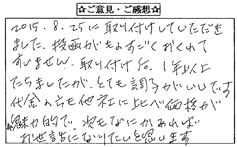 ☆ご意見・ご感想☆
2015.8.25に取り付けしていただき
ました、投函がものすごくおくれて
すいません、取り付け後、1年以上
たちましたが、とても調子がいいです
代金の方も他社に比べ価格が
魅力的で、次もなにかあれば
お世話になりたいと思います